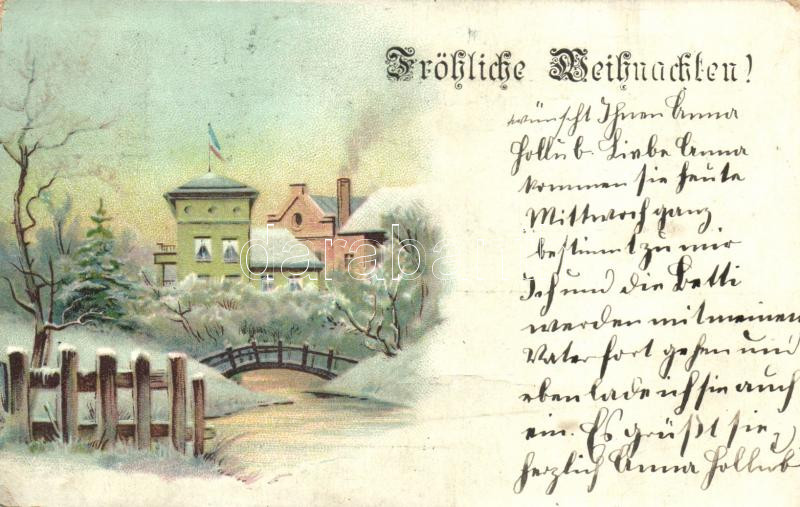 Fröhliche Weihnachten!
wünscht Ihnen Anna
Hollub. Liebe Anna
kommen sie heute
Mittwoch ganz
bestimmt zu mir
Ich und die Betti
werden mit meinen
Vater fort gehen und
eben lade ich sie auch
ein. Es grüßt sie,
herzlich Anna Hollub
darabanth